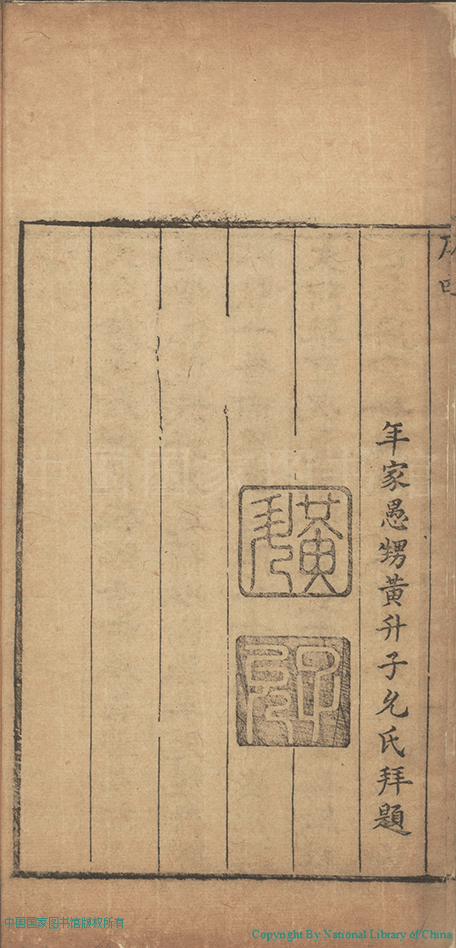 年家愚甥黃升子允氏拜題
黃
中国国家图书馆版权所有
Copyright By National Library of China